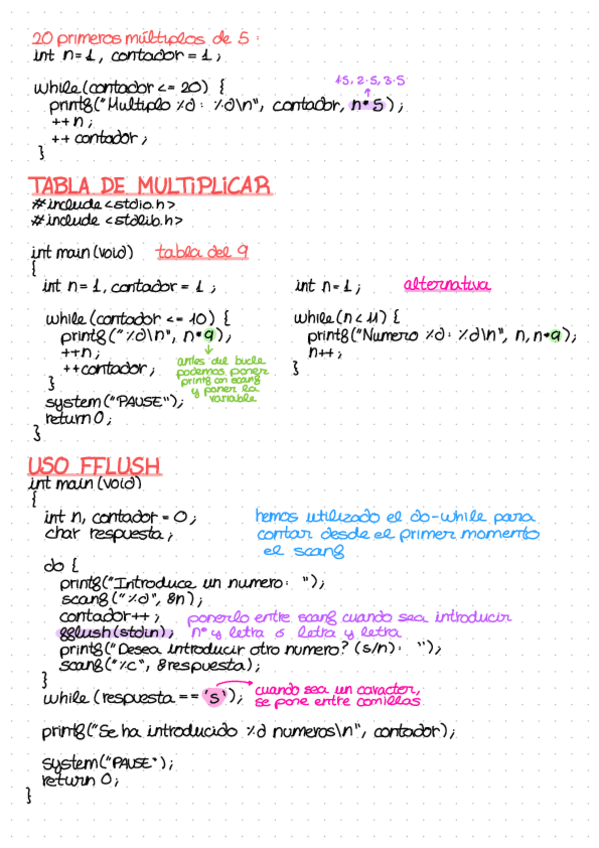 20 primeros múltiplos de 5:
int n=1, contador = 1;
while (contador <= 20) {
1·5, 2·5, 3·5
printf("Multiplo %d: %d\n", contador, n*5);
++n;
++ contador;
}
TABLA DE MULTIPLICAR
#include <stdio.h>
#include <stdlib.h>
int main (void) tabla del 9
{
int n=1, contador = 1;
while (contador <= 10) {
printf("%d\n", n*9);
++n;
++contador;
}
antes del bucle
podemos poner
printf con scanf
y poner la
variable
system("PAUSE");
return 0;
}
int n=1; alternativa
while (n < 11) {
printf("Numero %d: %d\n", n, n*9);
n++;
}
USO FFLUSH
int main (void)
{
int n, contador = 0;
char respuesta;
hemos utilizado el do-while para
contar desde el primer momento
el scanf
do {
printf("Introduce un numero: ");
scanf("%d", &n);
contador++; ponerlo entre scanf cuando sea introducir
fflush(stdin); nº y letra o letra y letra
printf("Desea introducir otro numero? (s/n): ");
scanf("%c", &respuesta);
}
while (respuesta == 's'); cuando sea un caracter,
se pone entre comillas
printf("Se ha introducido %d numeros\n", contador);
system("PAUSE");
return 0;
}